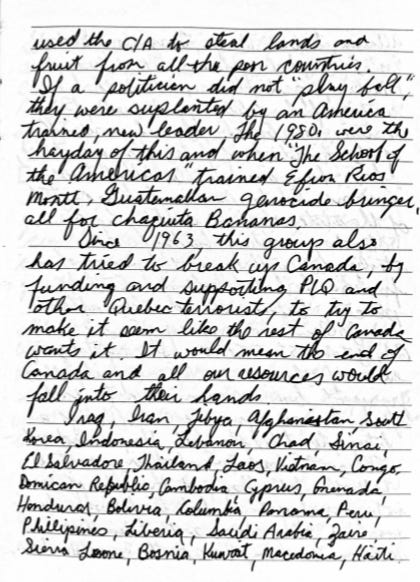 used the CIA to steal lands and
fruit from all the poor countries.
If a politician did not "play ball",
they were suplanted by an America
trained, new leader. The 1980s were the
hayday of this and when "The School of
the Americas" trained Efion Rios
Montt, Guatemalan genocide bringer,
all for chaquita Bananas.
Since 1963 this group also
has tried to break up Canada, by
funding and supporting PLQ and
other Quebec terrorists, to try to
make it seem like the rest of Canada
wants it. It would mean the end of
Canada and all our resources would
fall into their hands
Iraq, Iran, Libya, Afghanistan South
Korea, Indonesia, Lebanon, Chad, Sinai,
El Salvadore, Thailand, Laos, Vietnam, Congo,
Domican Republic, Cambodia, Cyprus, Grenada,
Honduras, Bolivia, Columbia, Panama, Peru,
Phillipines, Liberia, Saudi Arabia, Zaire,
Sierra Leone, Bosnia, Kuwait, Macedonia, Haiti.